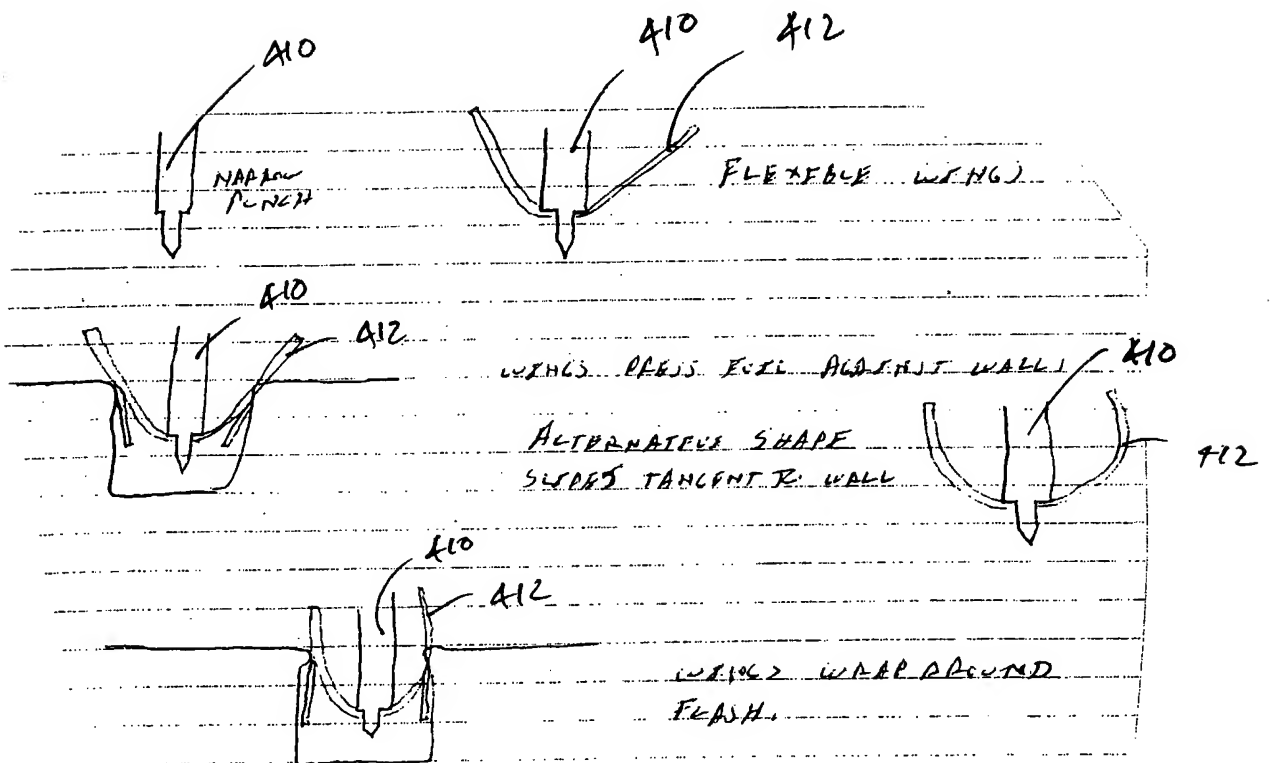 410
410
412
NARROW
PUNCH
FLEXIBLE WINGS
410
412
WINGS PRESS FOIL AGAINST WALLS
410
ALTERNATIVE SHAPE
SLOPES TANGENT TO WALL
412
410
412
WINGS WRAP AROUND
FLASH.